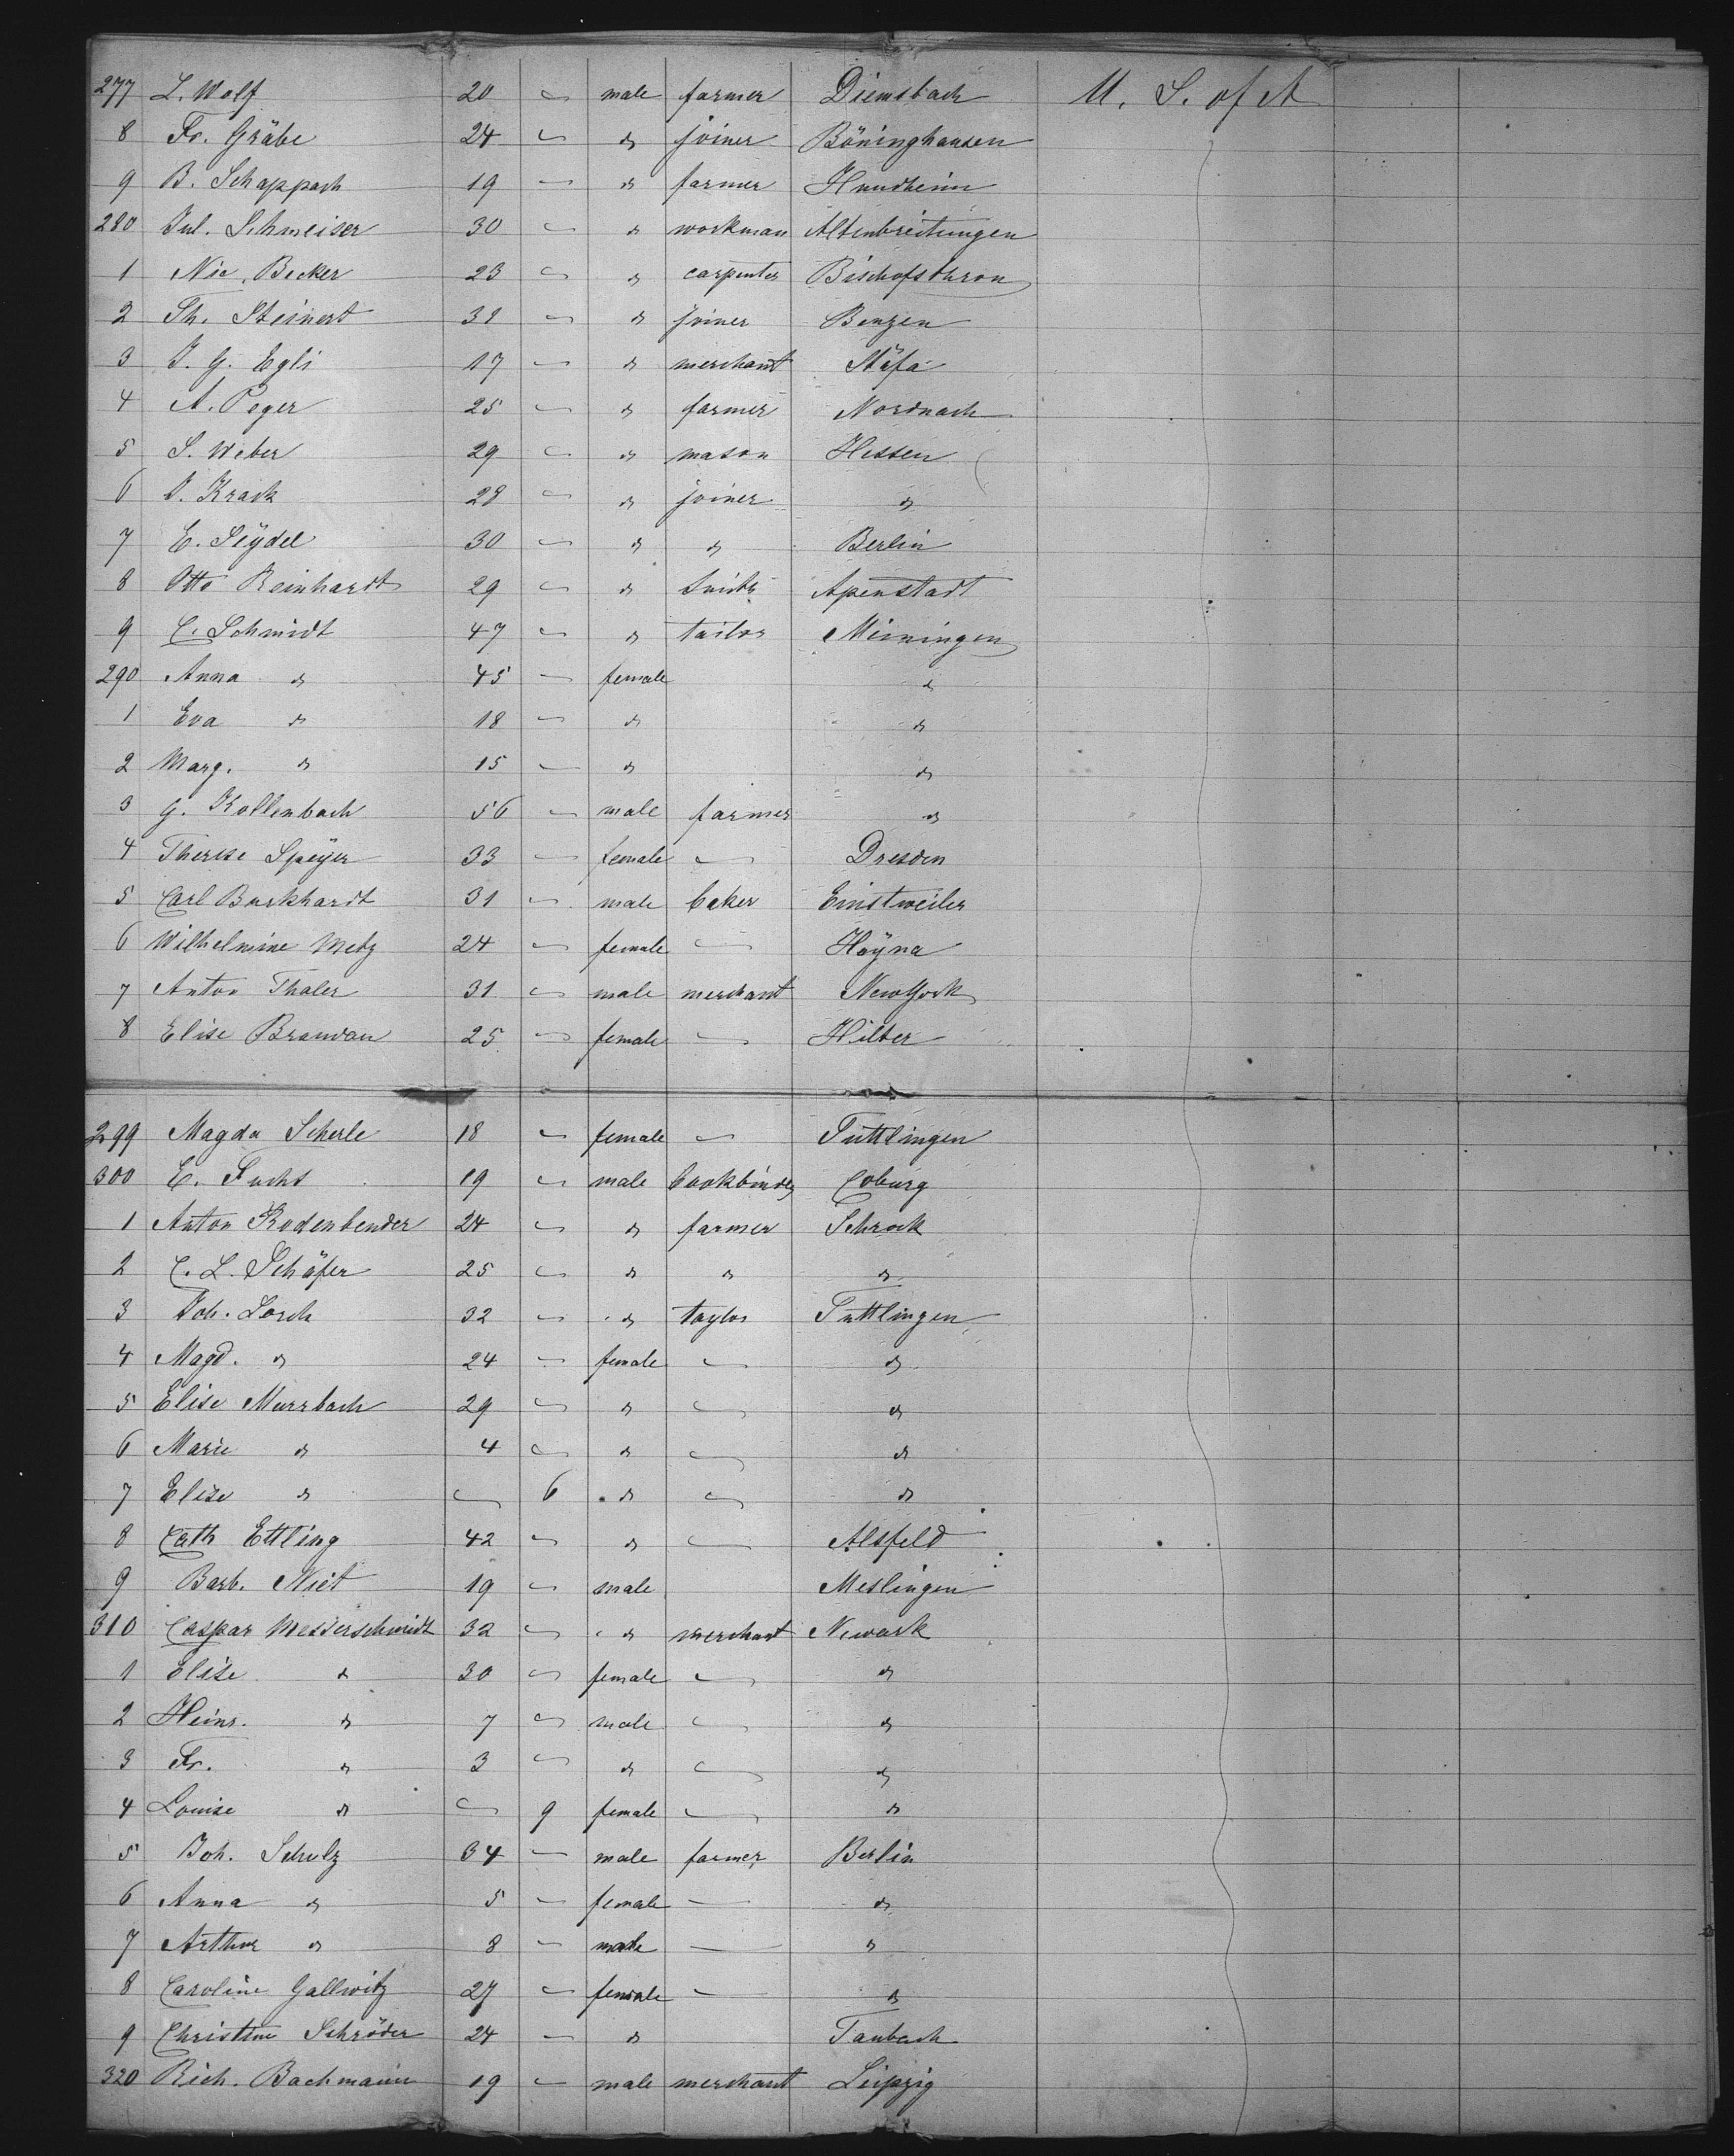 277 L. Wolf 20 — male farmer Diemsbach U. S. of A
8 Fr. Gräbe 24 — " joiner Böninghausen
9 B. Schappach 19 — " farmer Hundheim
280 Jul. Schmeiser 30 — " workman Altenbreitungen
1 Nic. Becker 23 — " carpenter Bischofsthron
2 Th. Steinert 31 — " joiner Benzen
3 J. G. Egli 17 — " merchant Stäfa
4 A. Peger 25 — " farmer Nordnach
5 S. Weber 29 — " mason Hessen
6 J. Krack 28 — " joiner "
7 E. Seÿdel 30 — " " Berlin
8 Otto Reinhardt 29 — " Apenstadt
9 C. Schmidt 47 — " tailor Meiningen
290 Anna " 45 — female "
1 Eva " 18 — " "
2 Marg. " 15 — " "
3 G. Kollenbach 56 — male farmer "
4 Therese Speÿer 33 — female — Dresden
5 Carl Burkhardt 31 — male baker Einstweiler
6 Wilhelmine Metz 24 — female — Hoÿna
7 Anton Thaler 31 — male merchant NewYork
8 Elise Brandau 25 — female — Hilter
299 Magda Scherle 18 — female — Tuttlingen
300 E. Fuchs 19 — male bookbinder Coburg
1 Anton Rodenbender 24 — " farmer Schrock
2 C. L. Schäfer 25 — " " "
3 Joh. Lorch 32 — " taylor Tuttlingen
4 Magd. " 24 — female — "
5 Elise Murrbach 29 — " — "
6 Marie " 4 — " — "
7 Elise " — 6 " — "
8 Cath Ettling 42 — " — Alsfeld
9 Barb. Niet 19 — male Meslingen
310 Caspar Messerschmidt 32 — " merchant Newark
1 Elise " 30 — female — "
2 Heinr. " 7 — male — "
3 Fr. " 3 — " — "
4 Louise " — 9 female — "
5 Joh. Schulz 34 — male farmer Berlin
6 Anna " 5 — female — "
7 Arthur " 8 — male — "
8 Caroline Gallwitz 27 — female — "
9 Christine Schröder 24 — " Taubach
320 Rich. Bachmann 19 — male merchant Leipzig